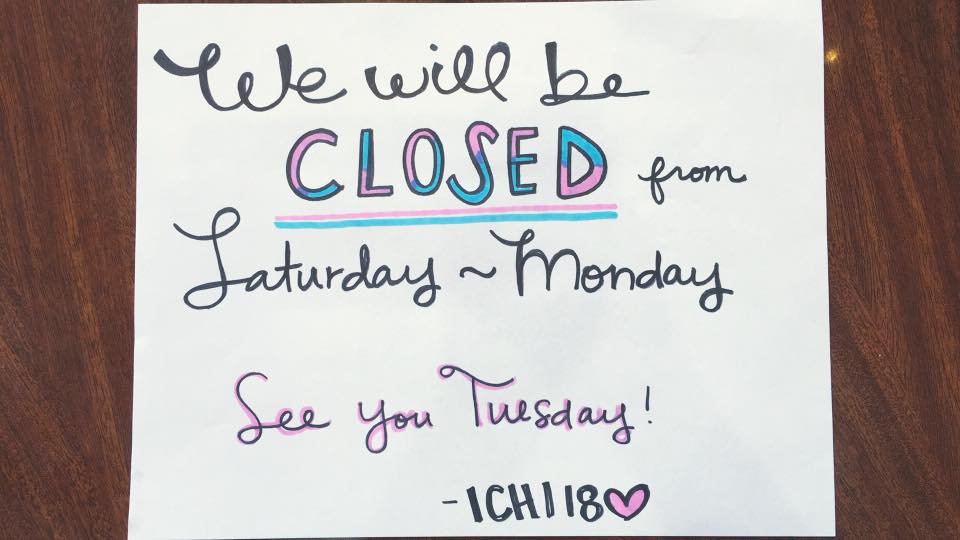 We will be
CLOSED from
Saturday ~ Monday
See you Tuesday!
-ICHI 18♥